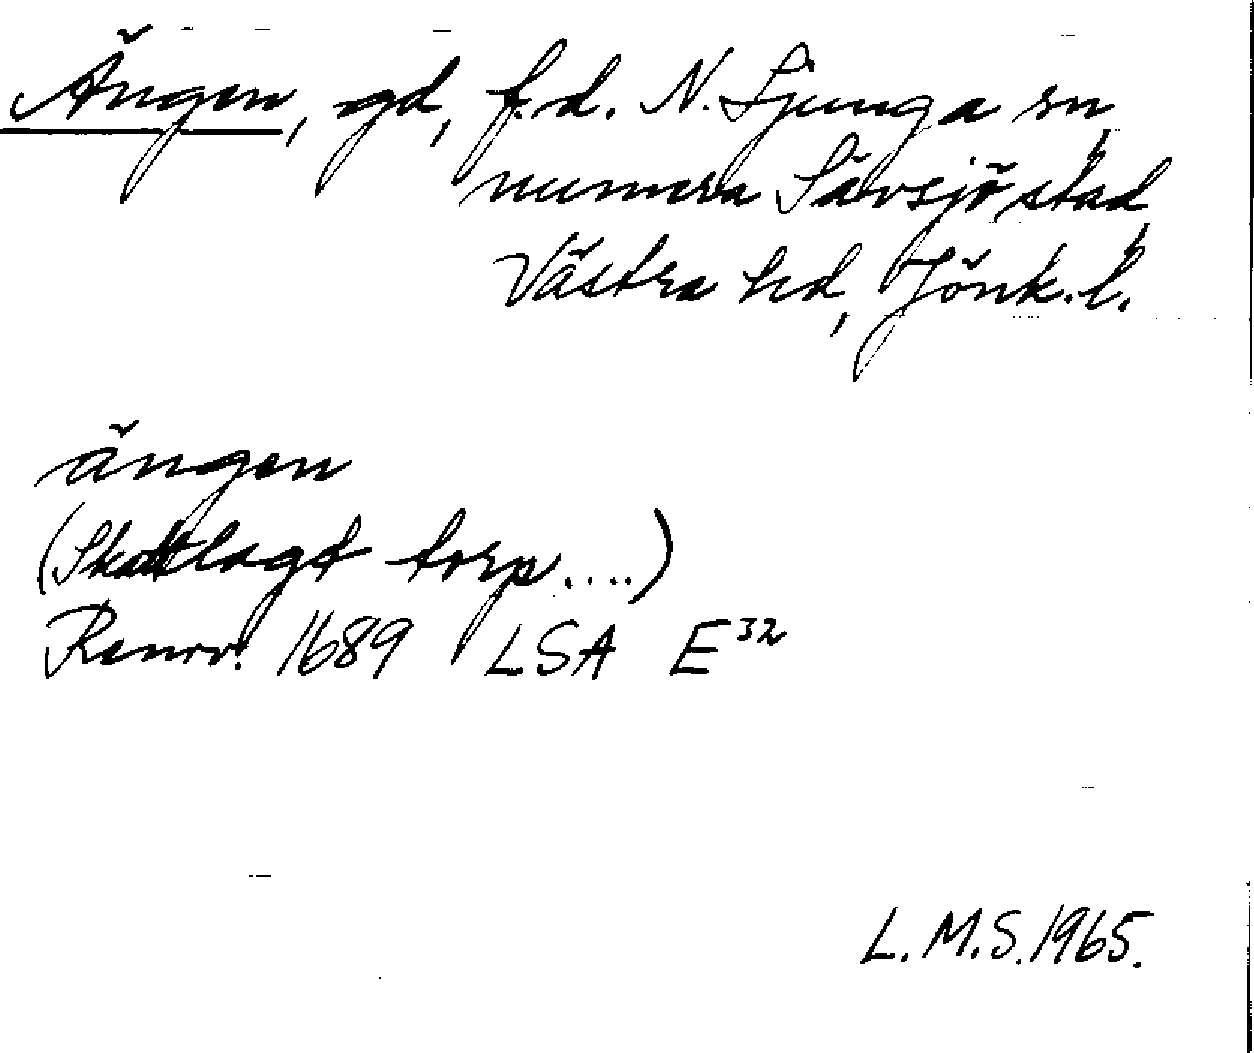 Ängen, gd, f.d. N. Ljunga sn,
numera Sävsjö stad,
Västra hd, Jönk. l.
ängen
(Skattlagt torp....)
Renov. 1689 LSA E32
L.M.S. 1965.